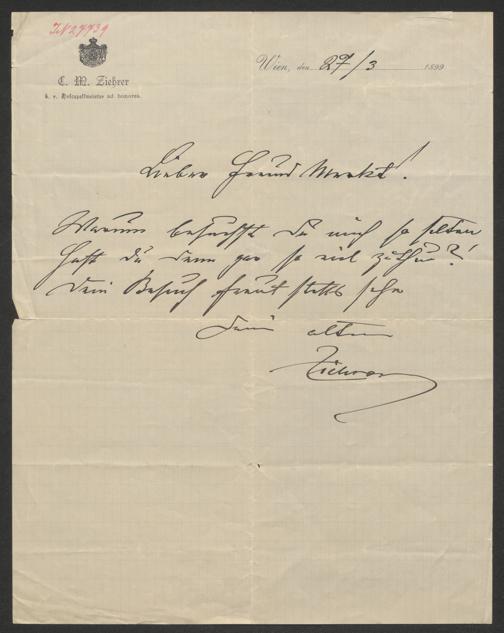 I.N.27.739
C. M. Ziehrer
k. u. k. Hofcapellmeister ad honores.
Wien, den 27/3 1899
Lieber Freund Merkt!
Warum besuchst Du mich so selten
hast du denn gar so viel zuthun?!
Dein Besuch freut stetts sehr
Dein alter
Ziehrer